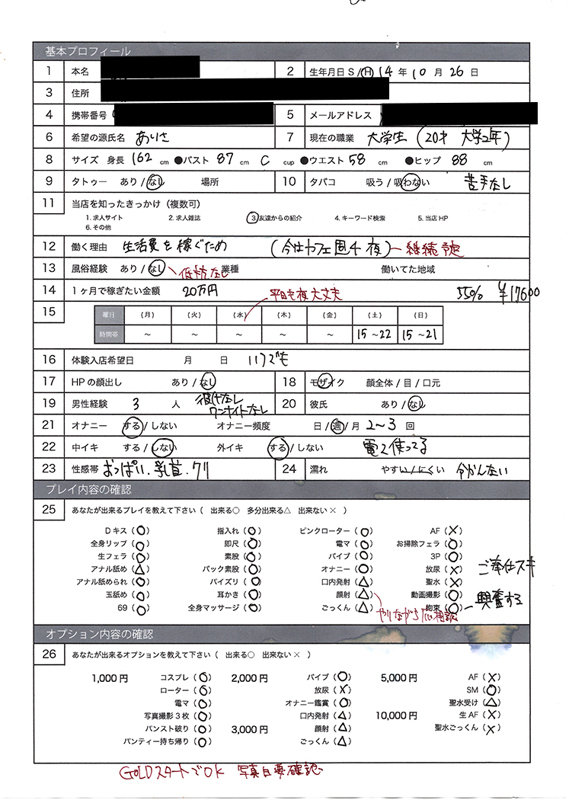 基本プロフィール
1 本名
2 生年月日 S / H 14 年 10 月 26 日
3 住所
4 携帯番号
5 メールアドレス
6 希望の源氏名 ありさ
7 現在の職業 大学生 (20才 大学2年)
8 サイズ 身長 162 cm ●バスト 87 cm C cup ●ウエスト 58 cm ●ヒップ 88 cm
9 タトゥー あり / なし 場所
10 タバコ 吸う / 吸わない 苦手なし
11 当店を知ったきっかけ(複数可)
1. 求人サイト 2. 求人雑誌 3. 友達からの紹介 4. キーワード検索 5. 当店 HP
6. その他
12 働く理由 生活費を稼ぐため (今はカフェ週4 夜)
13 風俗経験 あり / なし 業種 働いてた地域
14 1ヶ月で稼ぎたい金額 20万円 55% ¥17600
平日も夜大丈夫
15 曜日 (月) (火) (水) (木) (金) (土) (日)
時間帯 ~ ~ ~ ~ ~ 15~22 15~21
16 体験入店希望日 月 日 いつでも
17 HPの顔出し あり / なし
18 モザイク 顔全体 / 目 / 口元
19 男性経験 3 人 ワンナイトなし
20 彼氏 あり / なし
21 オナニー する / しない オナニー頻度 日 / 週 2~3 回
22 中イキ する / しない 外イキ する / しない 電マ使ってる
23 性感帯 おっぱい、乳首、クリ
24 濡れ やすい / にくい 分かんない
プレイ内容の確認
25 あなたが出来るプレイを教えて下さい (出来る○ 多分出来る△ 出来ない×)
Dキス (○) 指入れ (○) ピンクローター (○) AF (×)
全身リップ (○) 即尺 (○) 電マ (○) お掃除フェラ (○)
生フェラ (○) 素股 (○) バイブ (○) 3P (○)
アナル舐め (△) バック素股 (○) オナニー (○) 放尿 (×) ご奉仕スキ
アナル舐められ (○) パイズリ (○) 口内発射 (△) 聖水 (×)
玉舐め (○) 耳かき (○) 顔射 (△) 動画撮影 (○)
69 (○) 全身マッサージ (○) ごっくん (△) 拘束 (○) 興奮する
オプション内容の確認
26 あなたが出来るオプションを教えて下さい (出来る○ 出来ない×)
1,000円 コスプレ (○) 2,000円 バイブ (○) 5,000円 AF (×)
ローター (○) 放尿 (×) SM (○)
電マ (○) オナニー鑑賞 (○) 聖水受け (△)
写真撮影3枚 (○) 口内発射 (△) 10,000円 生AF (×)
パンスト破り (○) 3,000円 顔射 (△) 聖水ごっくん (×)
パンティー持ち帰り (○) ごっくん (△)
GOLDスタートでOK